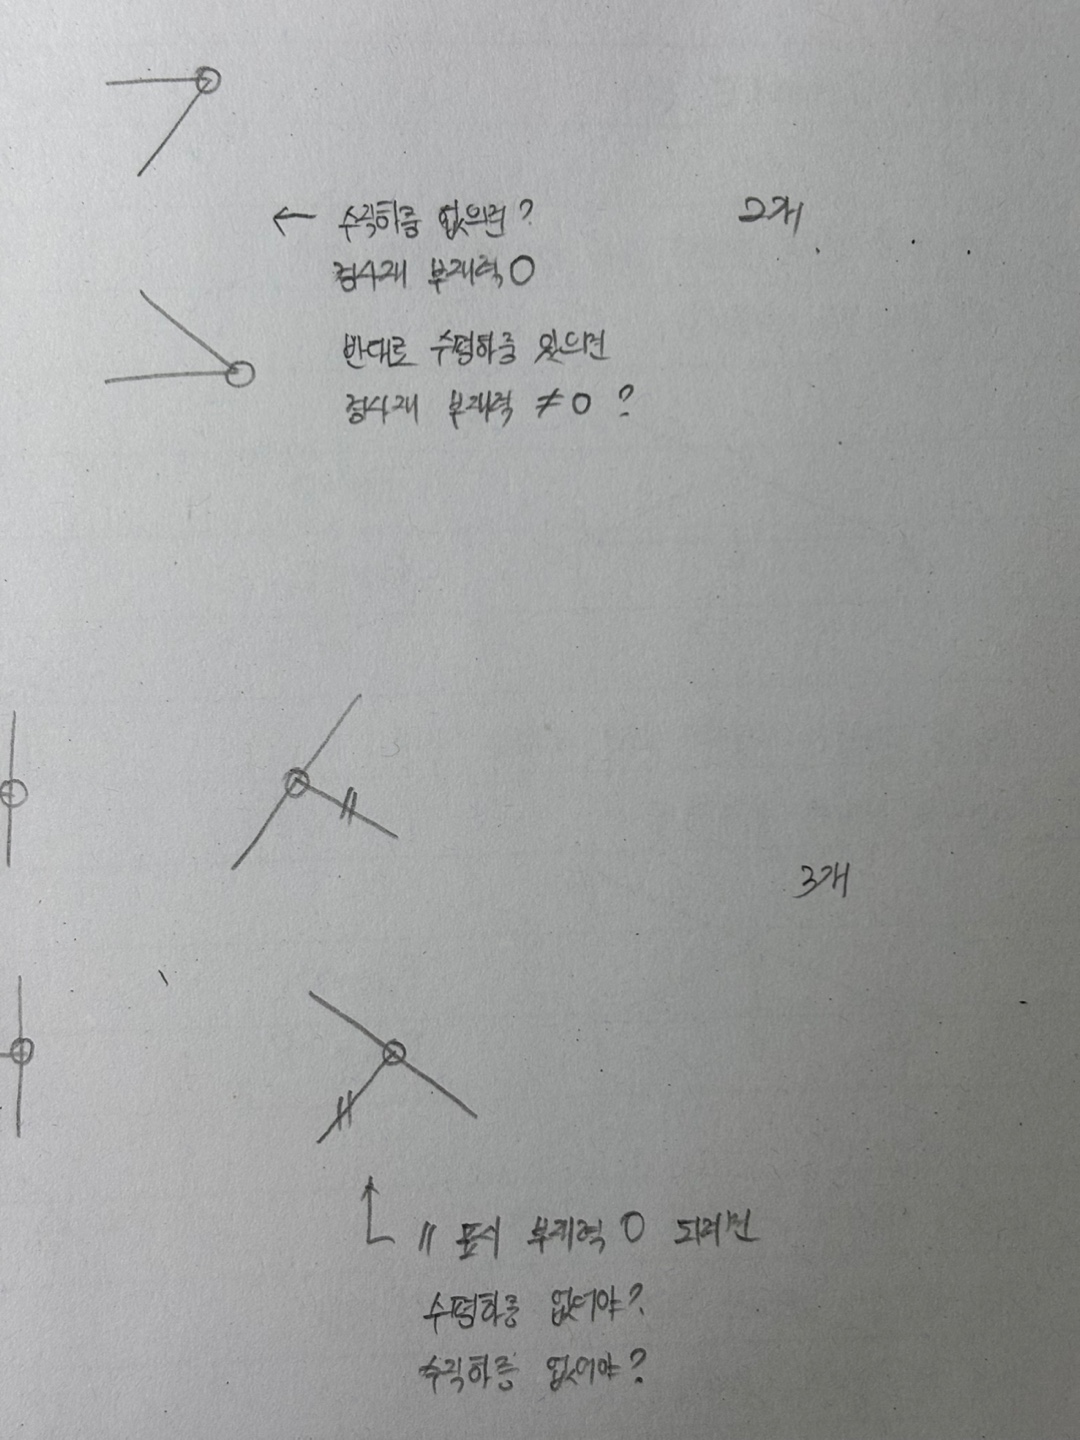 ← 수직하중 없으면?
2개
경사재 부재력 0
반대로 수평하중 있으면
경사재 부재력 ≠ 0 ?
3개
〃 표시 부재력 0 되려면
수평하중 없어야?
수직하중 없어야?